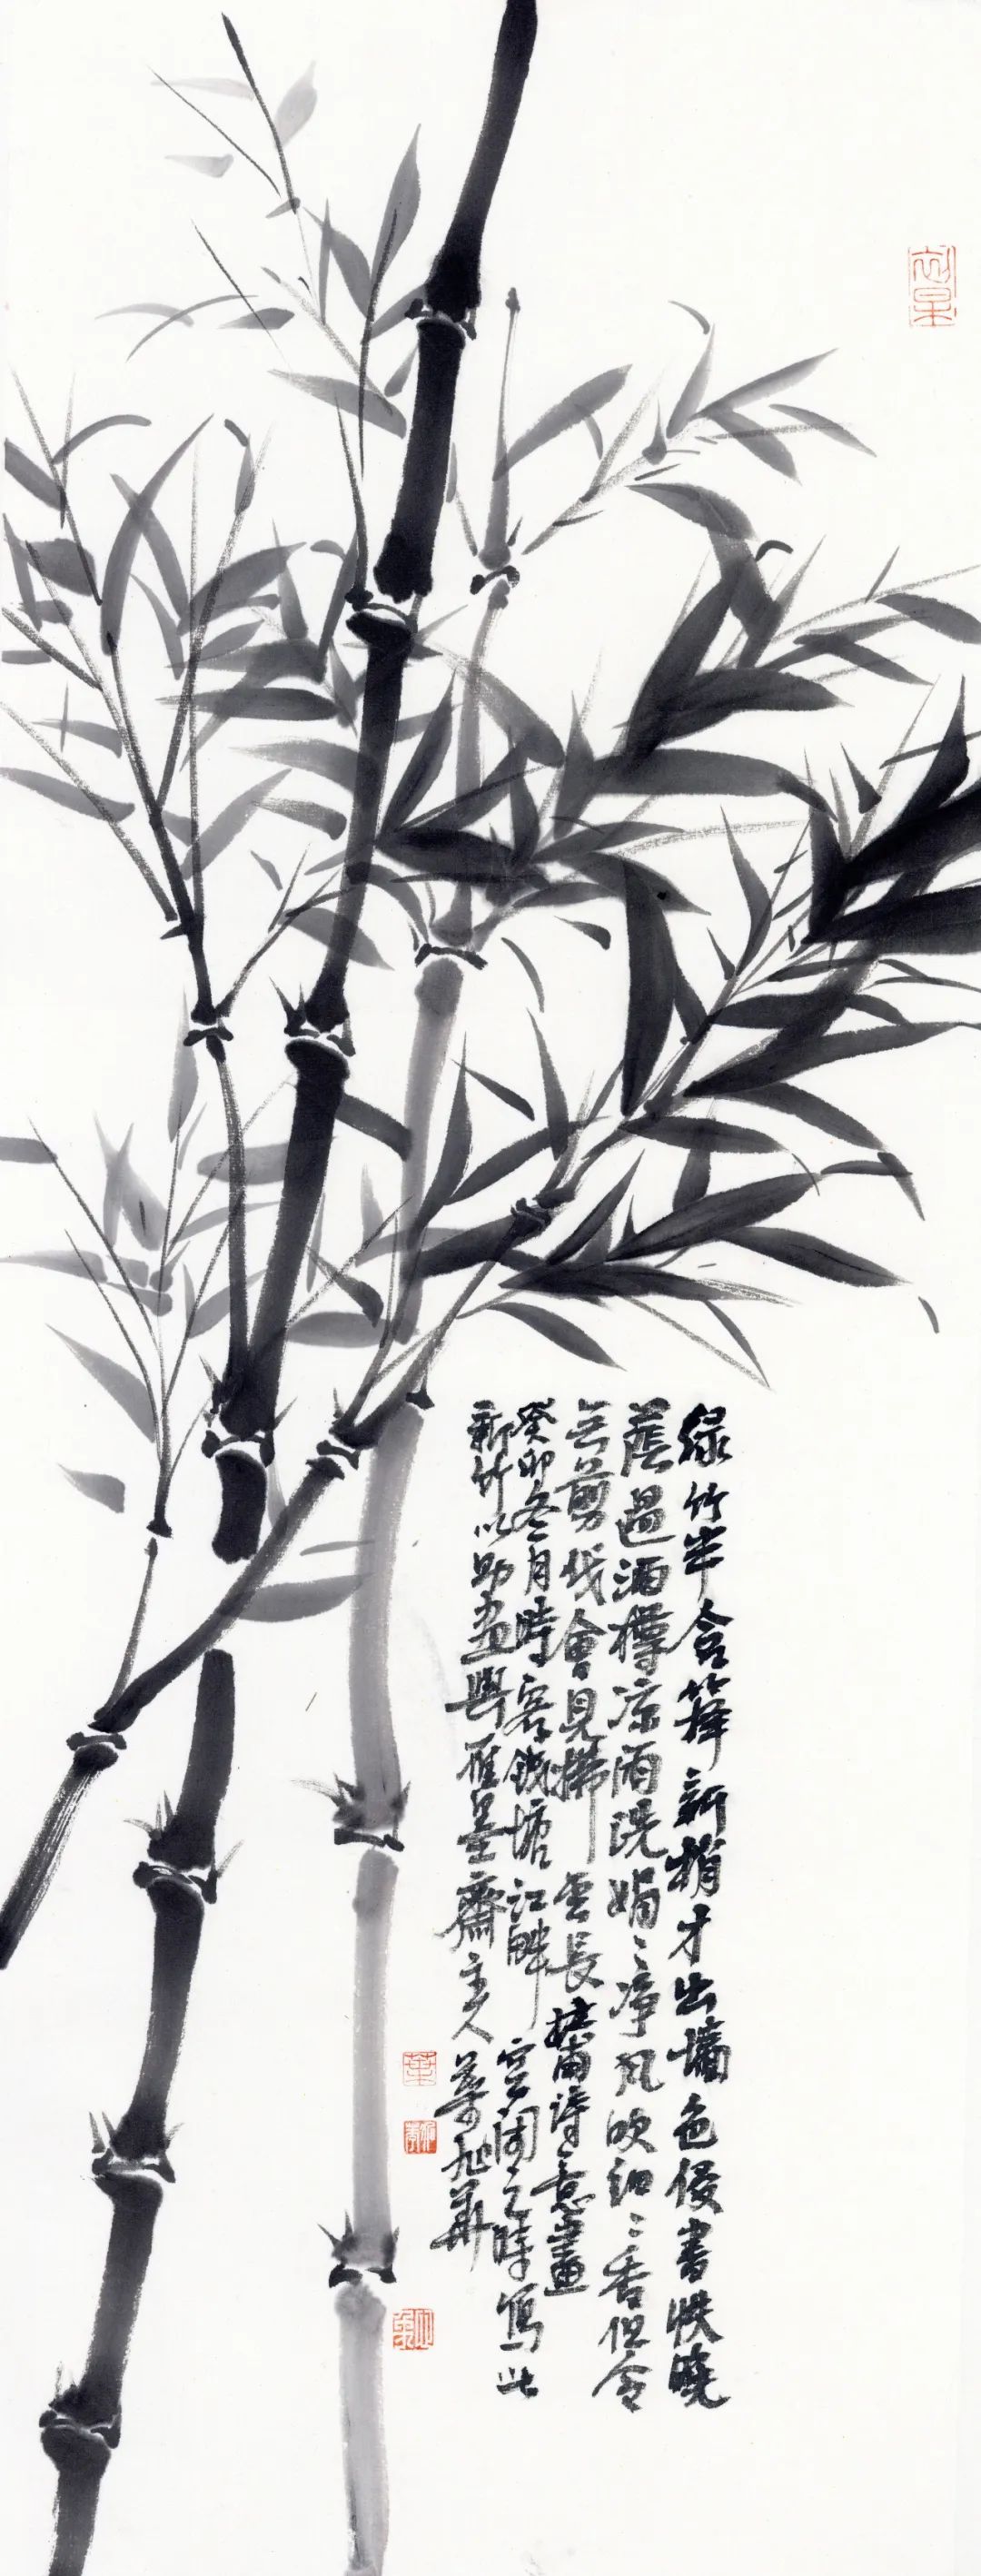 綠竹半含籜新梢才出墻色侵書帙曉
蔭過酒樽涼雨洗娟〻凈風吹細〻香但令
無剪伐會見拂雲長 杜甫詩意畫
癸卯冬月時客錢塘江畔空閑之時寫此
新竹以助畫興雁墨齋主人葉旭華